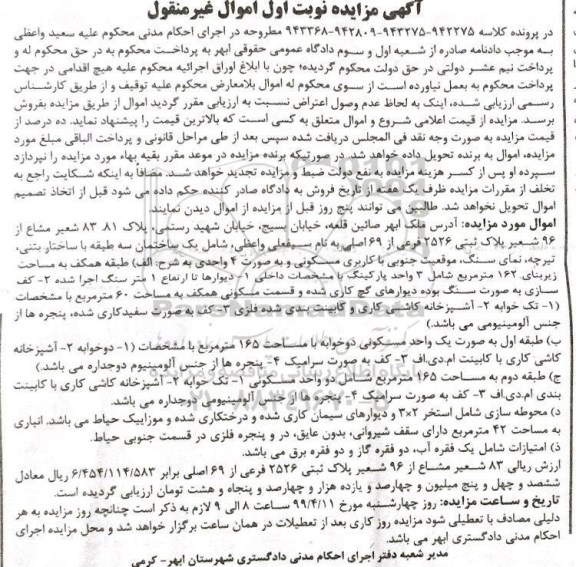 آگهی مزایده نوبت اول اموال غیرمنقول
در پرونده کلاسه ۹۴۲۲۷۵-۹۴۳۲۷۵-۹۴۲۸۰۹-۹۴۳۳۶۸ مطروحه در اجرای احکام مدنی محکوم علیه سعید واعظی
به موجب دادنامه صادره از شعبه اول و سوم دادگاه عمومی حقوقی ابهر به پرداخت محکوم به در حق محکوم له و
پرداخت نیم عشر دولتی در حق دولت محکوم گردیده؛ چون با ابلاغ اوراق اجرائیه محکوم علیه هیچ اقدامی در جهت
پرداخت محکوم به بعمل نیاورده است از سوی محکوم له اموال بلامعارض محکوم علیه توقیف و از طریق کارشناس
رسمی ارزیابی شده، اینک به لحاظ عدم وصول اعتراض نسبت به ارزیابی مقرر گردید اموال از طریق مزایده بفروش
برسد. مزایده از قیمت اعلامی شروع و اموال متعلق به کسی است که بالاترین قیمت را پیشنهاد نماید. ده درصد از
قیمت مزایده به صورت وجه نقد فی المجلس دریافت شده سپس بعد از طی مراحل قانونی و پرداخت الباقی مبلغ مورد
مزایده، اموال به برنده تحویل داده خواهد شد. در صورتیکه برنده مزایده در موعد مقرر بقیه بهاء مورد مزایده را نپردازد
سپرده او پس از کسر هزینه مزایده به نفع دولت ضبط و مزایده تجدید خواهد شد. مضافا به اینکه شکایت راجع به
تخلف از مقررات مزایده ظرف یک هفته از تاریخ فروش به دادگاه صادر کننده حکم داده می شود قبل از اتخاذ تصمیم
اموال تحویل نخواهد شد. طالبین می توانند پنج روز قبل از مزایده از اموال دیدن نمایند.
اموال مورد مزایده: آدرس ملک ابهر صائین قلعه، خیابان بسیج، خیابان شهید رستمی، پلاک ۸۱. ۸۳ شعیر مشاع از
۹۶ شعیر پلاک ثبتی ۲۵۲۶ فرعی از ۶۹ اصلی به نام سیفعلی واعظی، شامل یک ساختمان سه طبقه با ساختار بتنی،
تیرچه، نمای سنگ، موقعیت جنوبی با کاربری مسکونی و به صورت ۴ واحدی به شرح: الف) طبقه همکف به مساحت
زیربنای ۱۶۲ مترمربع شامل ۳ واحد پارکینگ با مشخصات داخلی ۱- دیوارها تا ارتفاع ۱ متر سنگ اجرا شده ۲- کف
سازی به صورت سنگ بوده دیوارهای گچ کاری شده و قسمت مسکونی همکف به مساحت ۶۰ مترمربع با مشخصات
(۱- تک خوابه ۲- آشپزخانه کاشی کاری و کابینت بندی شده فلزی ۳- کف به صورت سفیدکاری شده، پنجره ها از
جنس آلومینیومی می باشد.)
ب) طبقه اول به صورت یک واحد مسکونی دوخوابه با مساحت ۱۶۵ مترمربع با مشخصات (۱- دوخوابه ۲- آشپزخانه
کاشی کاری با کابینت ام.دی.اف ۳- کف به صورت سرامیک ۴- پنجره ها از جنس آلومینیوم دوجداره می باشد.)
ج) طبقه دوم به مساحت ۱۶۵ مترمربع شامل دو واحد مسکونی ۱- تک خوابه ۲- آشپزخانه کاشی کاری با کابینت
بندی ام.دی.اف ۳- کف به صورت سرامیک ۴- پنجره ها از جنس آلومینیومی دوجداره می باشد.
د) محوطه سازی شامل استخر ۲×۳ و دیوارهای سیمان کاری شده و درختکاری شده و موزاییک حیاط می باشد. انباری
به مساحت ۴۲ مترمربع دارای سقف شیروانی، بدون عایق، در و پنجره فلزی در قسمت جنوبی حیاط.
ذ) امتیازات شامل یک فقره آب، دو فقره گاز و دو فقره برق می باشد.
ارزش ریالی ۸۳ شعیر مشاع از ۹۶ شعیر پلاک ثبتی ۲۵۲۶ فرعی از ۶۹ اصلی برابر ۶/۴۵۴/۱۱۴/۵۸۳ ریال معادل
ششصد و چهل و پنج میلیون و چهارصد و یازده هزار و چهارصد و پنجاه و هشت تومان ارزیابی گردیده است.
تاریخ و ساعت مزایده: روز چهارشنبه مورخ ۹۹/۴/۱۱ ساعت ۸ الی ۹ لازم به ذکر است چنانچه روز مزایده به هر
دلیلی مصادف با تعطیلی شود مزایده روز کاری بعد از تعطیلات در همان ساعت برگزار خواهد شد و محل مزایده اجرای
احکام مدنی دادگستری ابهر می باشد.
مدیر شعبه دفتر اجرای احکام مدنی دادگستری شهرستان ابهر- کرمی